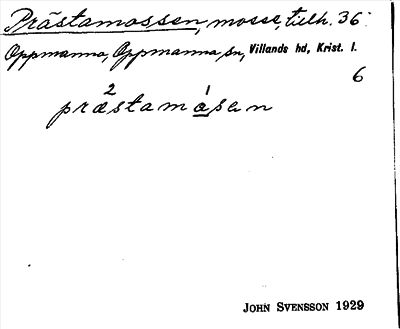 Prästamossen, mosse, tillh. 36:
Oppmanna, Oppmanna sn, Villands hd, Krist. l.
6
2 1
præstamåsen
JOHN SVENSSON 1929